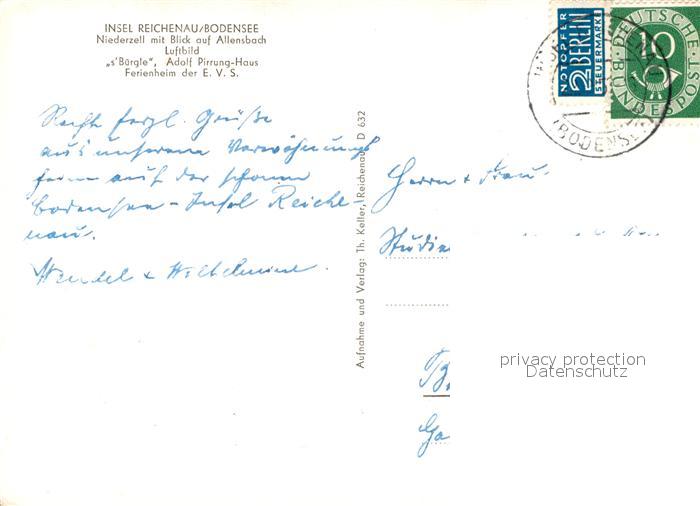 INSEL REICHENAU/BODENSEE
Niederzell mit Blick auf Allensbach
Luftbild
„s'Bürgle", Adolf Pirrung-Haus
Ferienheim der E. V. S.
Recht herzl. Grüße
aus unserem Verwöhnungs
heim auf der schönen
Bodensee-Insel Reiche
nau.
Wendel + Wilhelmine.
Aufnahme und Verlag: Th. Keller, Reichenau D 632
NOTOPFER
2 BERLIN
STEUERMARKE
DEUTSCHE
10
BUNDESPOST
(BODENSEE)
Herrn + Frau
Studie
B.
Ga
privacy protection
Datenschutz